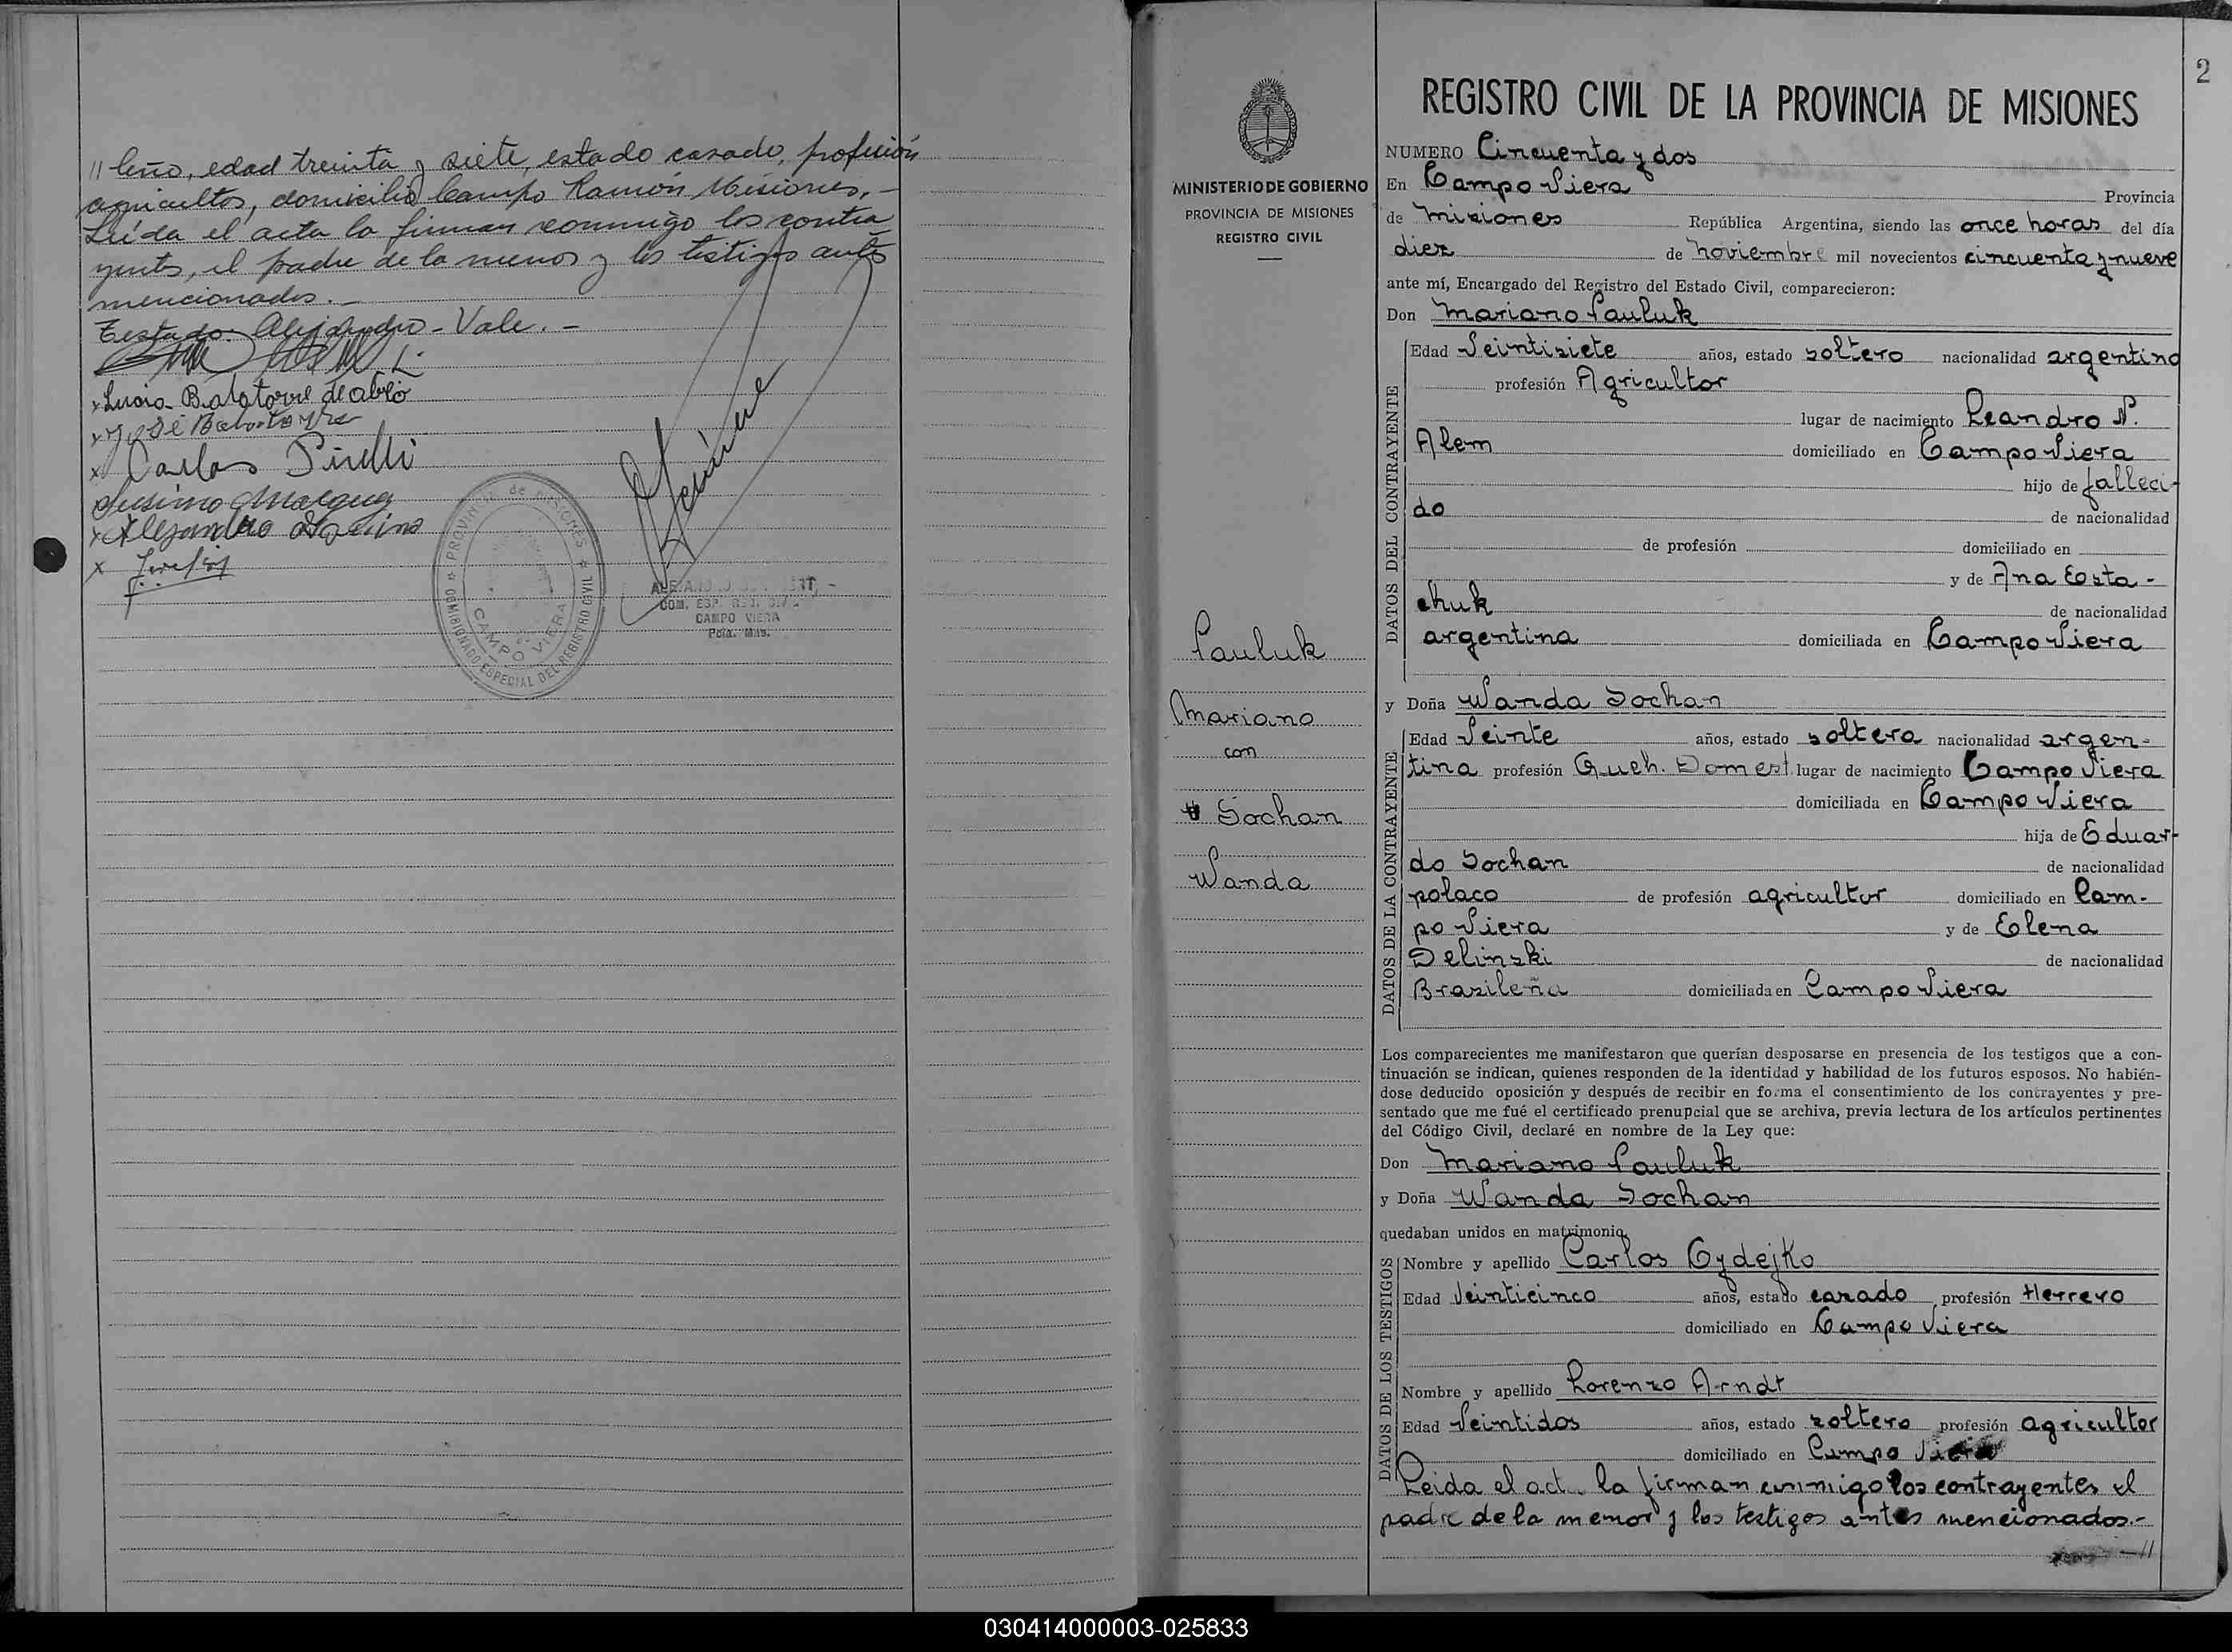 // leño, edad treinta y siete, estado casado, profesión
agricultor, domicilio Campo Ramón Misiones, -
Leída el acta la firman conmigo los contra
yentes, el padre de la menor y los testigos antes
mencionados. -
Testado: Alejandro - Vale. -
x Lucia
x José
x Carlos
x Alejandro
x
PROVINCIA de MISIONES
COMISIONADO ESPECIAL DEL REGISTRO CIVIL
CAMPO VIERA
COM. ESP. REG. CIVIL
CAMPO VIERA
Pcia. Mnes.
2
MINISTERIO DE GOBIERNO
PROVINCIA DE MISIONES
REGISTRO CIVIL
Pauluk
Mariano
con
Sochan
Wanda
REGISTRO CIVIL DE LA PROVINCIA DE MISIONES
NUMERO Cincuenta y dos
En Campo Viera Provincia
de Misiones República Argentina, siendo las once horas del día
diez de noviembre mil novecientos cincuenta y nueve
ante mí, Encargado del Registro del Estado Civil, comparecieron:
Don Mariano Pauluk
DATOS DEL CONTRAYENTE
Edad Veintisiete años, estado soltero nacionalidad argentino
profesión Agricultor
lugar de nacimiento Leandro N.
Alem domiciliado en Campo Viera
hijo de falleci-
do de nacionalidad
de profesión domiciliado en
y de Ana Costa -
chuk de nacionalidad
argentina domiciliada en Campo Viera
y Doña Wanda Sochan
DATOS DE LA CONTRAYENTE
Edad Veinte años, estado soltera nacionalidad argen-
tina profesión Queh. Domest. lugar de nacimiento Campo Viera
domiciliada en Campo Viera
hija de Eduar-
do Sochan de nacionalidad
polaco de profesión agricultor domiciliado en Cam-
po Viera y de Elena
Delinski de nacionalidad
Brasileña domiciliada en Campo Viera
Los comparecientes me manifestaron que querían desposarse en presencia de los testigos que a con-
tinuación se indican, quienes responden de la identidad y habilidad de los futuros esposos. No habién-
dose deducido oposición y después de recibir en forma el consentimiento de los contrayentes y pre-
sentado que me fué el certificado prenupcial que se archiva, previa lectura de los artículos pertinentes
del Código Civil, declaré en nombre de la Ley que:
Don Mariano Pauluk
y Doña Wanda Sochan
quedaban unidos en matrimonio.
DATOS DE LOS TESTIGOS
Nombre y apellido Carlos Cydejko
Edad Veinticinco años, estado casado profesión Herrero
domiciliado en Campo Viera
Nombre y apellido Lorenzo Arndt
Edad Veintidos años, estado soltero profesión agricultor
domiciliado en Campo Viera
Leida el acta la firman conmigo los contrayentes el
padre de la menor y los testigos antes mencionados.-
//
030414000003-025833